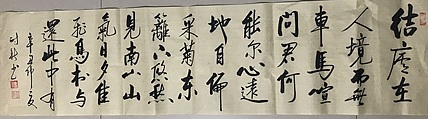 結庐在
人境而無
車馬喧
問君何
能尔心遠
地自偏
采菊東
籬下悠然
見南山山
氣日夕佳
飛鳥相与
還此中有
辛丑年夏